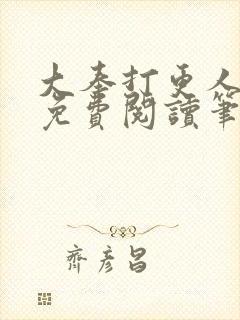 大奉打更人
免費閱讀筆
齊彥昌